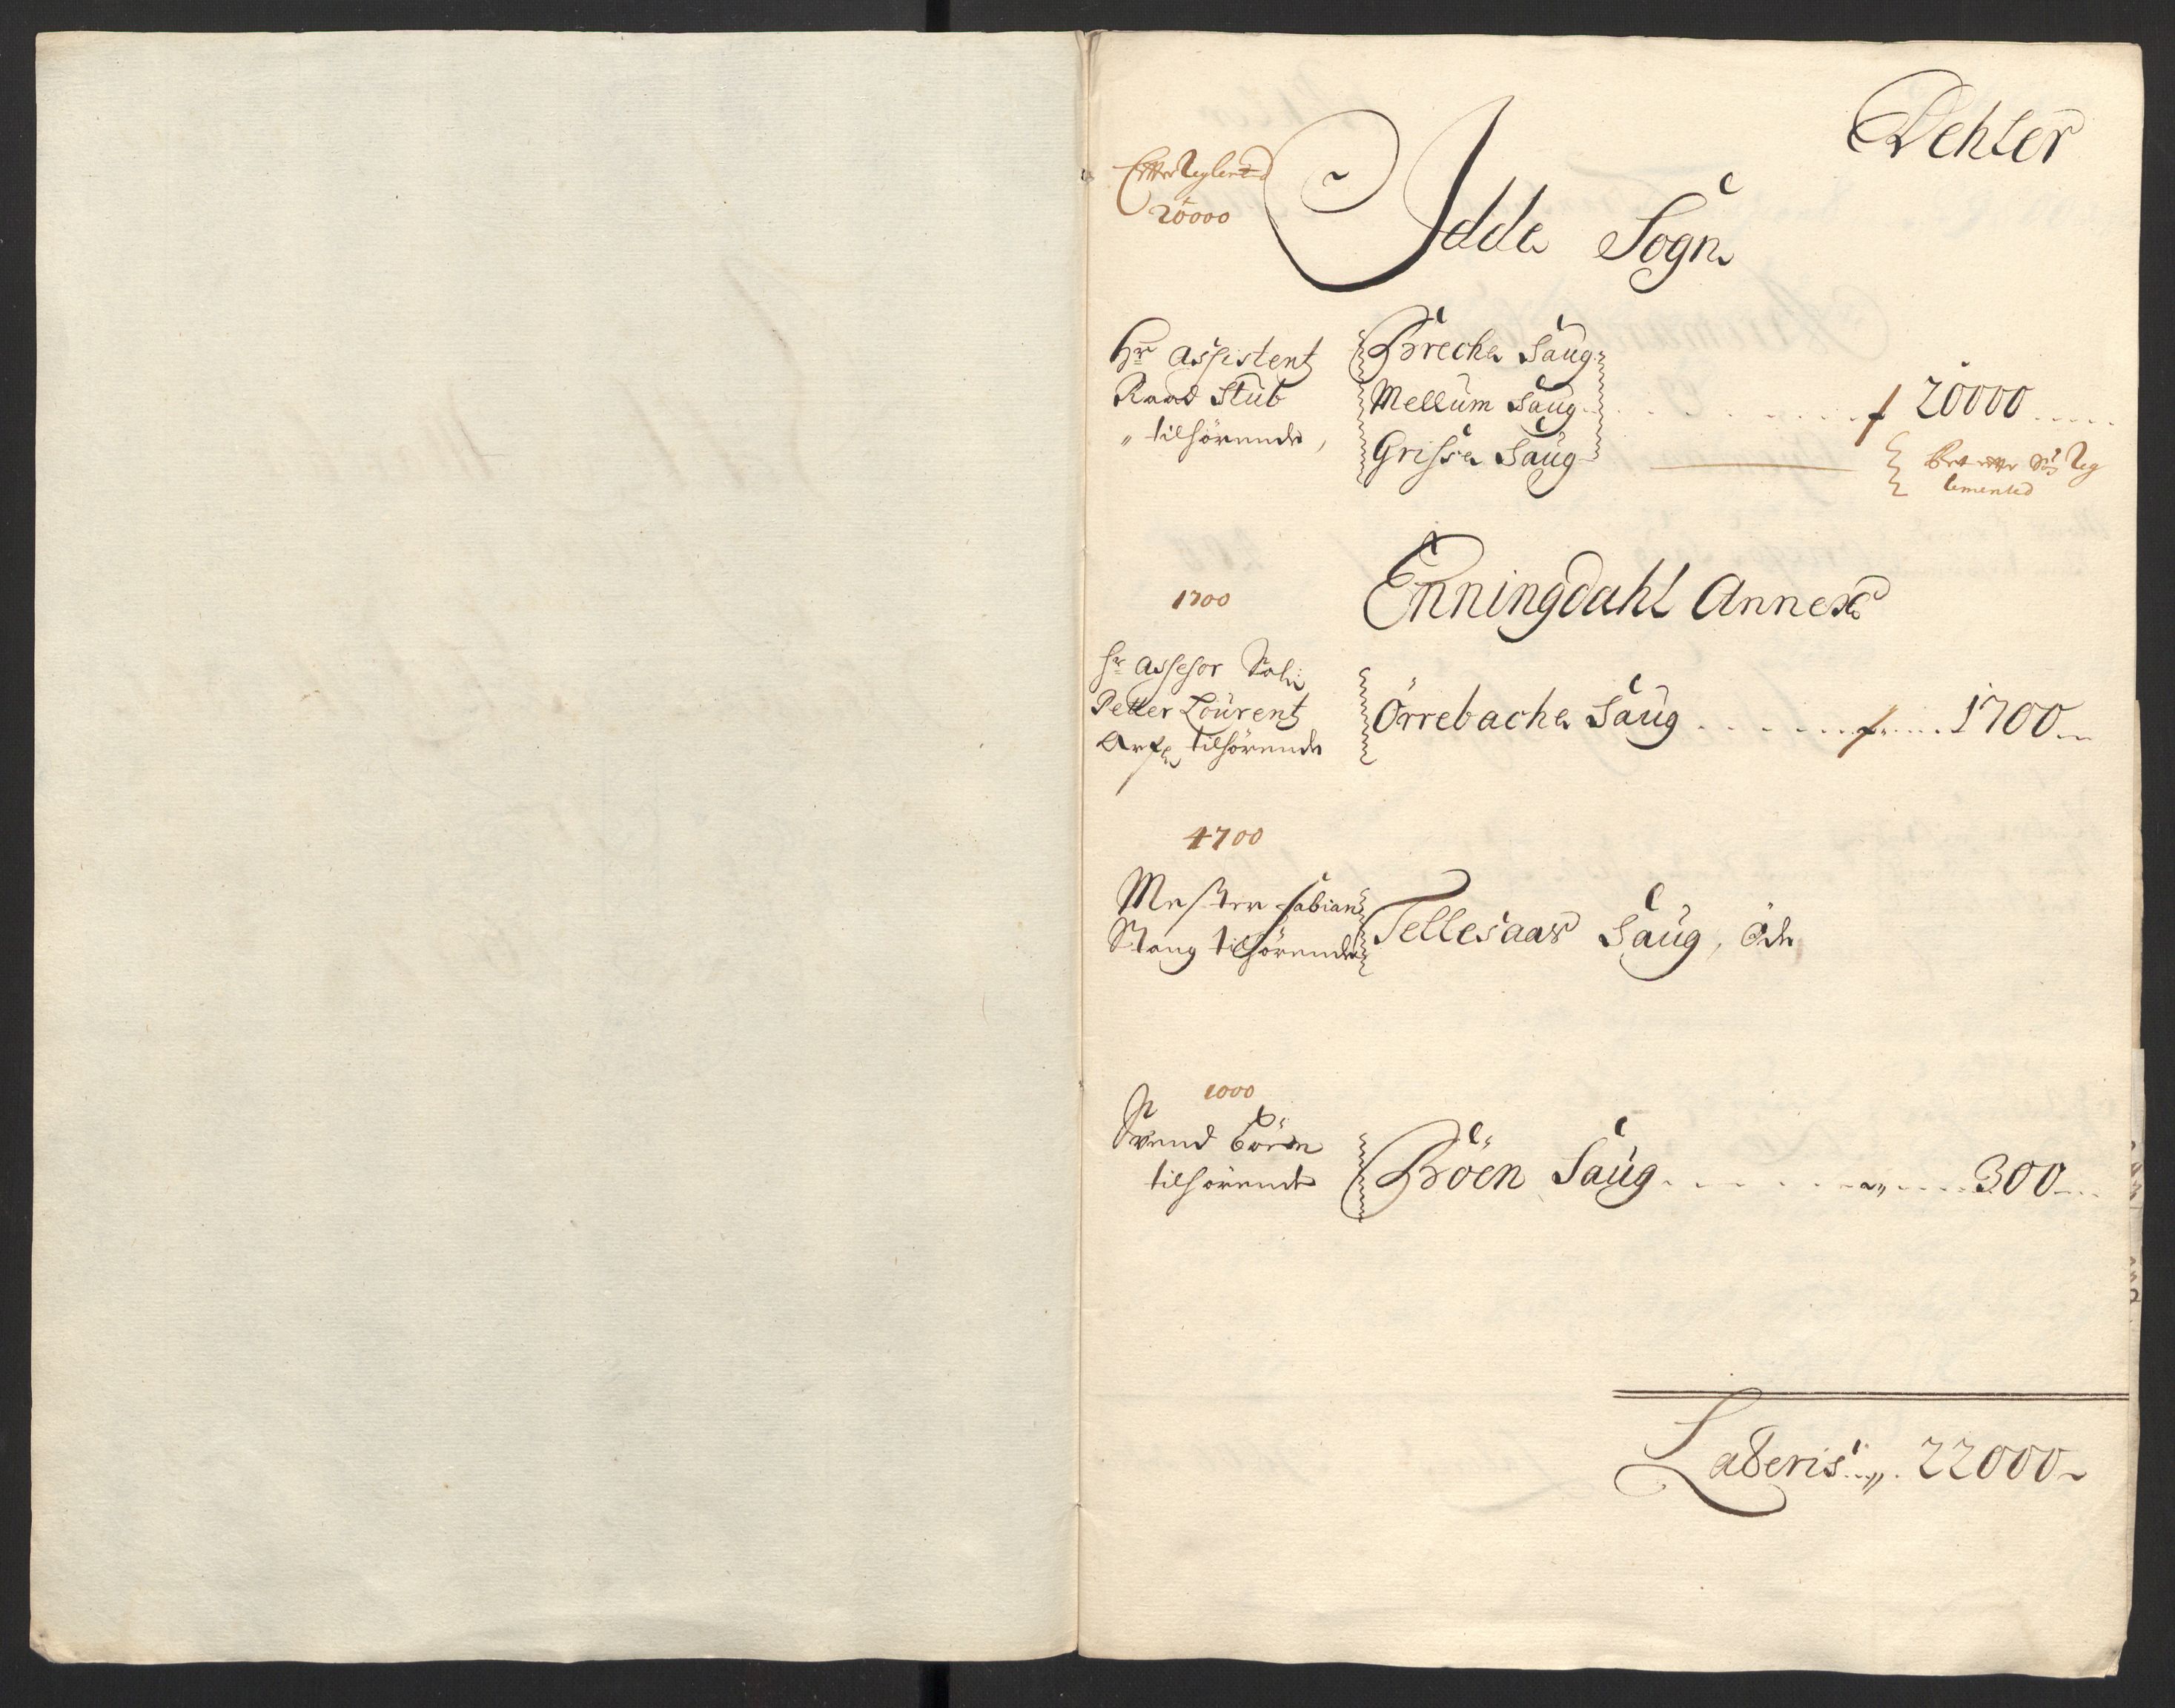 Dehler
Efter Reglem:
20000
Idde Sogn
Hr Assistent
Raad Stub
" tilhörende,
Breche Saug
Mellum Saug
Grisse Saug
20000
Reg
lemented
1700
Enningdahl Annex
Hr Assesor Sahl
Petter Lourentz
tilhörende
Örrebache Saug
1700
4700
Mester Fabian
Stang tilhörende
Tellesaas Saug, öde
1000
Svend Böen
tilhörende
Böen Saug
300
Lateris 22000